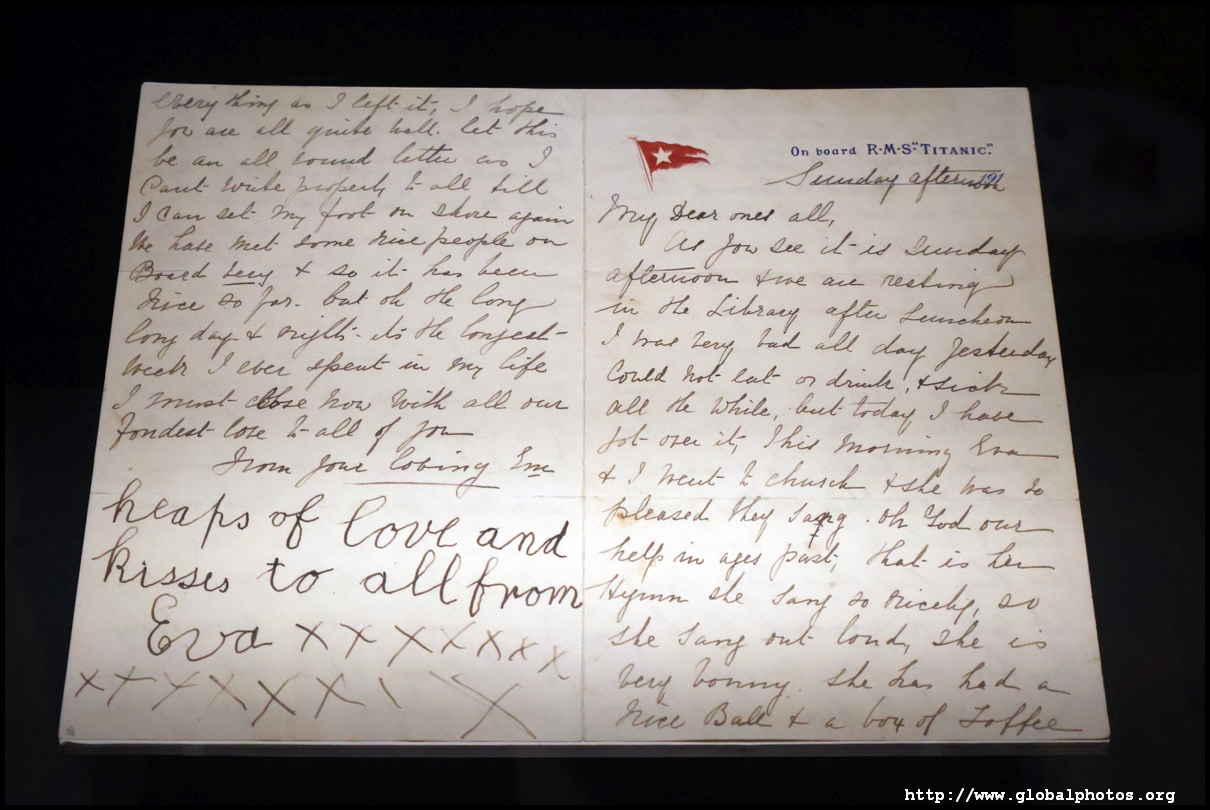 On board R·M·S "TITANIC."
191
Sunday afternoon
My Dear ones all,
As you see it is Sunday
afternoon & we are resting
in the Library after Luncheon
I was very bad all day Yesterday
Could not eat or drink, & sick
all the while, but today I have
got over it, This morning Eva
& I went to church & she was so
pleased they sang. Oh God our
help in ages past, that is her
Hymn she sang so nicely, so
she sang out loud, she is
very bonny. She has had a
nice Ball & a box of Toffee
everything as I left it, I hope
you are all quite well. let this
be an all round letter as I
Cant write properly to all till
I can set my foot on shore again
We have met some nice people on
Board Lucy & so it has been
nice so far. but oh the long
long day & nights. its the longest
week I ever spent in my life
I must close now With all our
fondest love to all of you
From your loving Em
heaps of love and
kisses to all from
Eva x x x x x x x
x x x x x x \ X
http://www.globalphotos.org